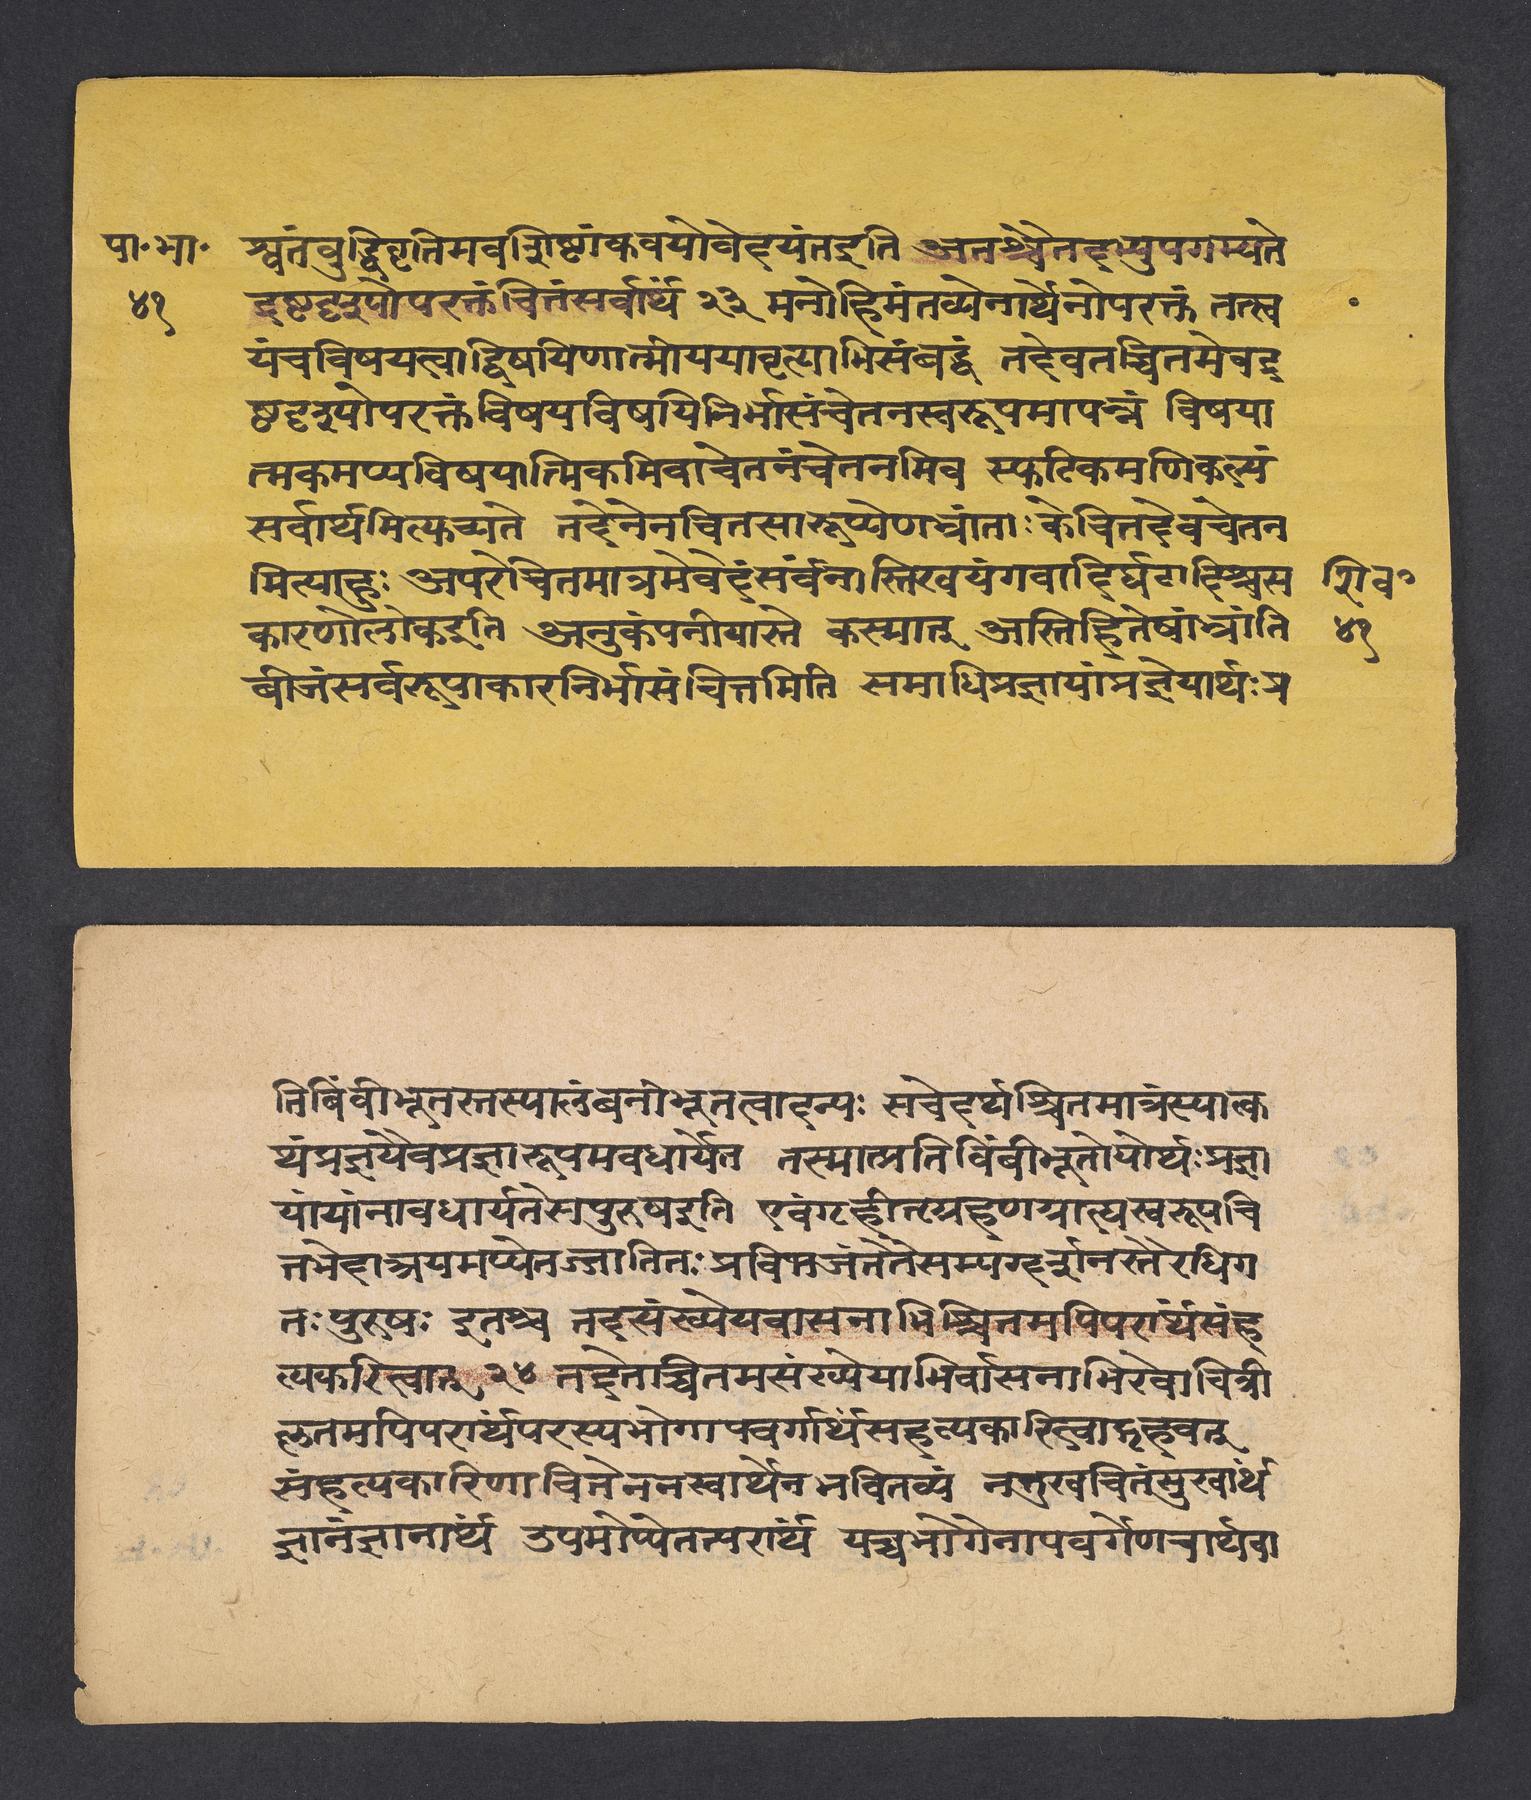 पा॰भा॰ श्वतंबुद्धिवृत्तिमवशिष्टांकवयोवेदयंतइति अतश्चैतदभ्युपगम्यते
४१ द्रष्टृदृश्योपरक्तंचित्तंसर्वार्थं २३ मनोहिमंतव्येनार्थेनोपरक्तं तत्स्व
यंचविषयत्वाद्विषयिणात्मीययावृत्याभिसंबद्धं तदेवतच्चित्तमेवद्र
ष्टृदृश्योपरक्तंविषयविषयिनिर्भासंचेतनस्वरूपमापन्नं विषया
त्मकमप्यविषयात्मिकमिवाचेतनंचेतनमिव स्फटिकमणिकल्पं
सर्वार्थमित्युच्यते तदेनेनचित्तसारूप्येणभ्रांताः केचित्तदेवचेतन
मित्याहुः अपरेचित्तमात्रमेवेदंसर्वंनास्तिखयंगवादिर्घटादिश्चस शिव॰
कारणोलोकइति अनुकंपनीयास्ते कस्मात् अस्तिहितेषांभ्रांति ४१
बीजंसर्वरूपाकारनिर्भासंचित्तमिति समाधिप्रज्ञायांप्रज्ञेयार्थःप्र
तिबिंबीभूतस्तस्यालंबनीभूतत्वादन्यः सचेदर्थश्चित्तमात्रंस्यात्क
थंप्रज्ञयैवप्रज्ञारूपमवधार्येत तस्मात्प्रतिबिंबीभूतोयोर्थःप्रज्ञा
यांयांनावधार्यतेसपुरुषइति एवंगृहीतग्रहणग्राह्यस्वरूपचि
त्तभेदात्त्रयमप्येतज्जातितः प्रविभजंतेतेसम्यग्दर्शिनस्तैरधिग
तःपुरुषः इतश्च तदसंख्येयवासनाभिश्चित्तमपिपरार्थंसंह
त्यकारित्वात् २४ तदेतच्चित्तमसंख्येयाभिर्वासनाभिरेवाचित्री
कृतमपिपरार्थंपरस्यभोगापवर्गार्थंसंहत्यकारित्वाद्गृहवत्
संहत्यकारिणाचित्तेननस्वार्थेनभवितव्यं नसुखचित्तंसुखार्थं
ज्ञानंज्ञानार्थं उपमोप्येतत्परार्थं यच्चभोगेनापवर्गेणचार्थवा